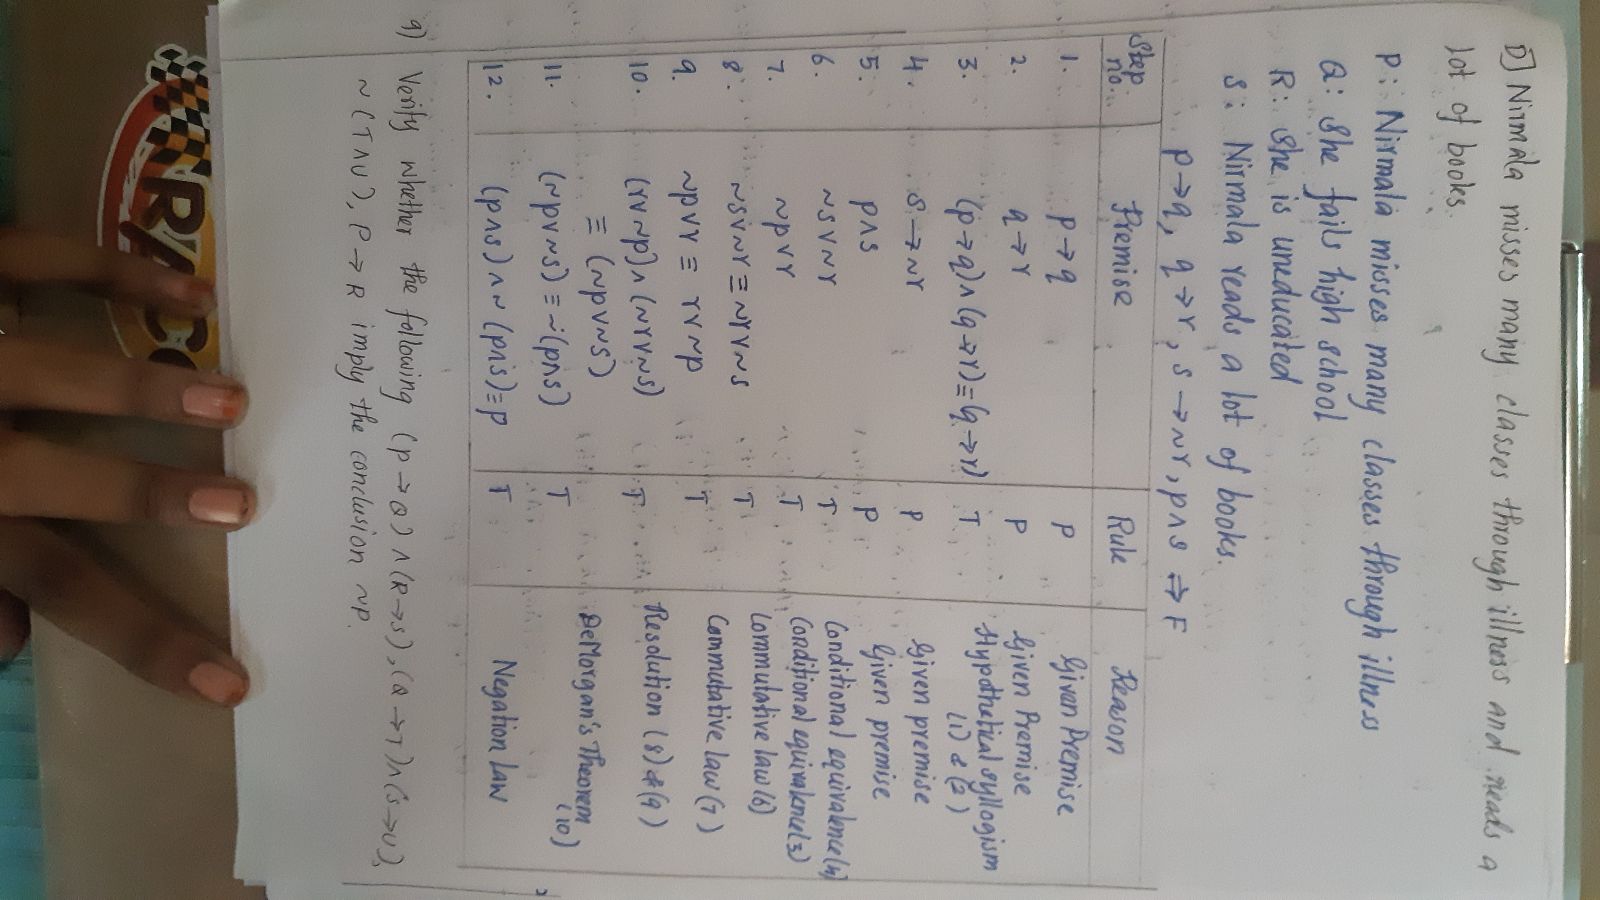 D] Nirmala misses many classes through illness and reads a
lot of books.
P: Nirmala misses many classes through illness
Q: She fails high school
R: She is uneducated
S: Nirmala reads a lot of books.
p→q, q→r, s→~r, p∧s ⇒ F
Step no. Premise Rule Reason
1. p→q P Given Premise
2. q→r P Given Premise
3. (p→q)∧(q→r)≡(q→r) T Hypothetical syllogism (1) & (2)
4. s→~r P Given premise
5. p∧s P Given premise
6. ~s∨~r T Conditional equivalence(4)
7. ~p∨r T Conditional equivalence(3)
8. ~s∨~r≡~r∨~s T Commutative law(6)
9. ~p∨r ≡ r∨~p T Commutative law(7)
10. (r∨~p)∧(~r∨~s) T Resolution (8)&(9)
≡ (~p∨~s)
11. (~p∨~s)≡~(p∧s) T DeMorgan's Theorem (10)
12. (p∧s)∧~(p∧s)≡p T Negation Law
9) Verify whether the following (p→Q)∧(R→S),(Q→T)∧(S→U),
~(T∧U), P→R imply the conclusion ~P.
RAC